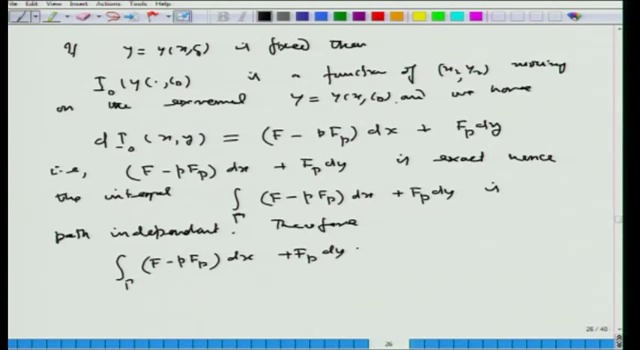 File Edit View Insert Actions Tools Help
If y = y(x, c₀) is fixed then
I₀(y(·, c₀) is a function of (x₂, y₂) moving
on the extremal y = y(x, c₀) and we have
d I₀(x, y) = (F - pFₚ) dx + Fₚ dy
i.e., (F - pFₚ) dx + Fₚ dy is exact hence
the integral ∫_Γ (F - pFₚ) dx + Fₚ dy is
path independant. Therefore
∫_Γ (F - pFₚ) dx + Fₚ dy.
26 / 40
26